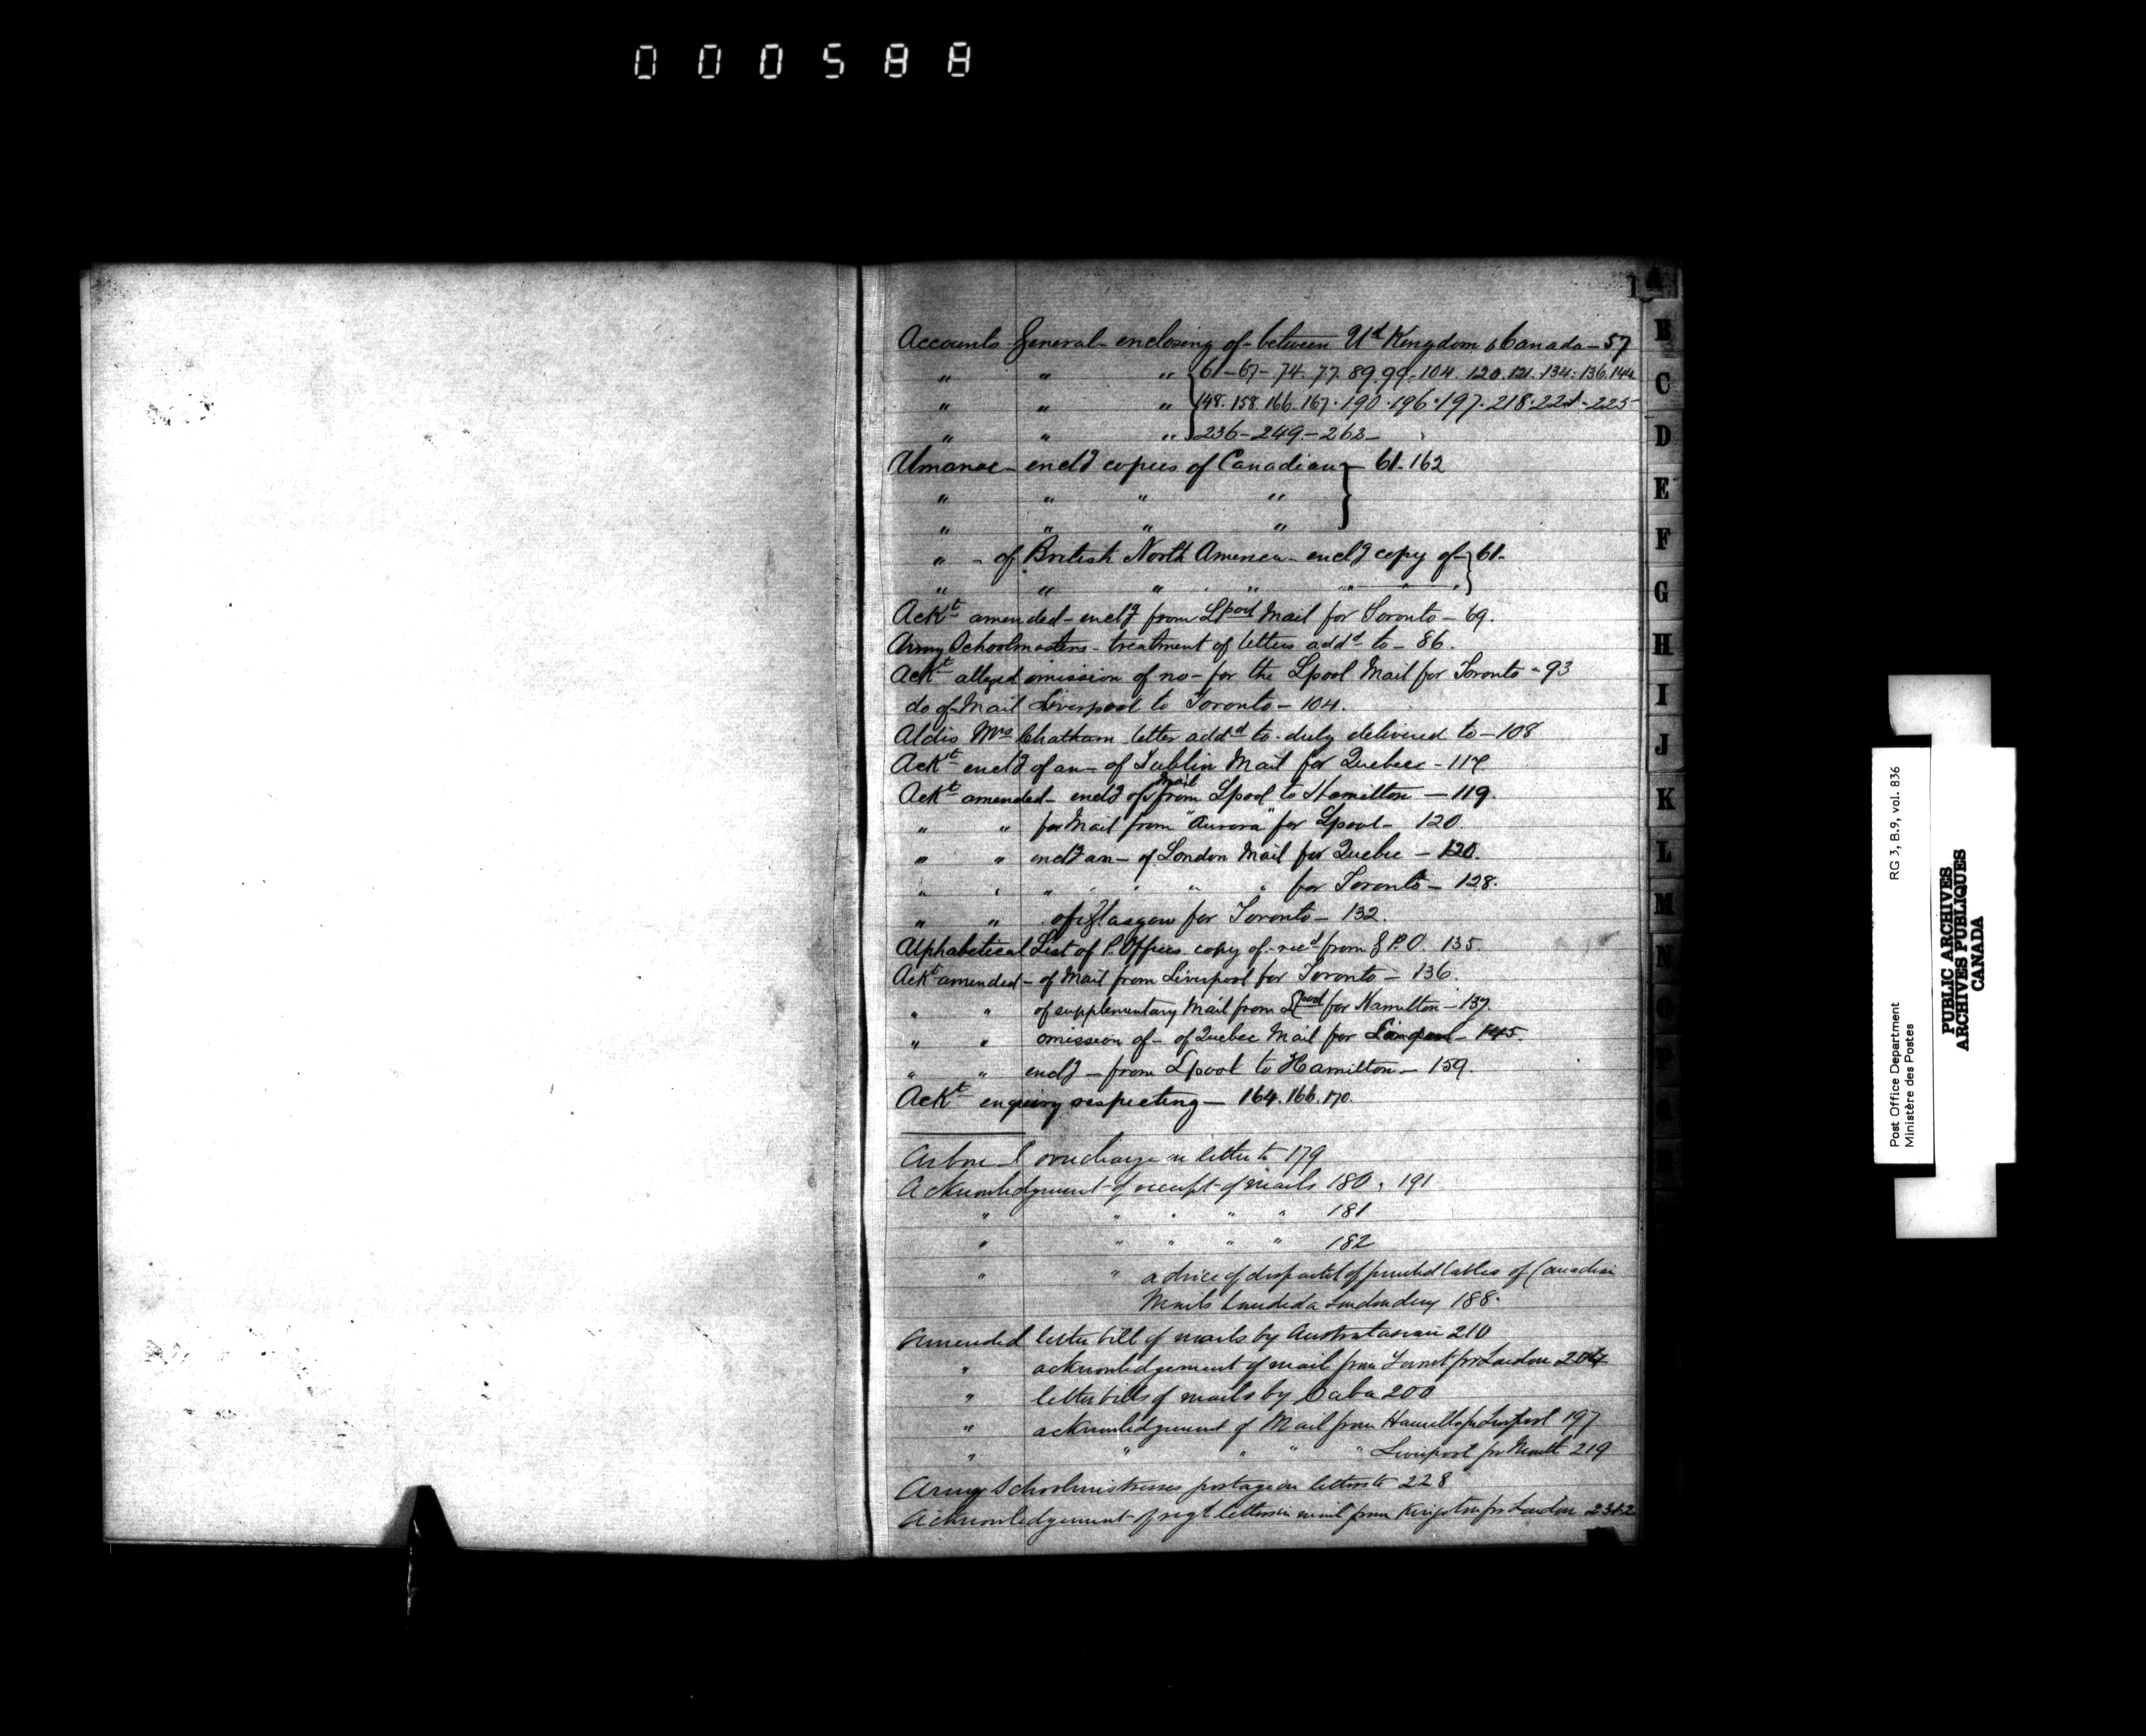 000588
1
A
Accounts General - enclosing of - between Ud Kingdom & Canada - 57
" " " 61 - 67 - 74. 77. 89. 99. 104. 120. 121. 134. 136. 144
" " " 148. 158. 166. 167. 190. 196. 197. 218. 221. 225
" " " 236 - 249 - 263 -
Almanac - enclg copies of Canadian - 61. 162
" " " "
" " " "
" - of British North America - enclg copy of - 61.
" " " " " " "
Ackt amended - enclg from Lpool Mail for Toronto - 69.
Army Schoolmasters - treatment of letters addd to - 86.
Ackt alleged omission of no - for the Lpool Mail for Toronto - 93
do of Mail Liverpool to Toronto - 104.
Aldis Mrs Chatham letter addd to duly delivered to - 108
Ackt enclg of an - of Dublin Mail for Quebec - 117
Ackt amended - enclg of Mail from Lpool to Hamilton - 119.
" " for Mail from "Aurora" for Lpool - 120.
" " enclg an - of London Mail for Quebec - 120.
" " " " " " " for Toronto - 128.
" " of Glasgow for Toronto - 132.
Alphabetical List of P. Offices copy of - recd from G.P.O. 135.
Ackt amended - of Mail from Liverpool for Toronto - 136.
" " of supplementary Mail from Lpool for Hamilton - 137.
" " omission of - of Quebec Mail for Liverpool - 145.
" " enclg - from Lpool to Hamilton - 159.
Ackt enquiry respecting - 164. 166. 170.
overcharge on letter to 179
Acknowledgment of receipt of mails 180, 191
" " " " " 181
" " " " " 182
" " advice of dispatch of printed tables of Canadian
Mails landed a Londonderry 188.
Amended letter bill of mails by Australasian 210
" acknowledgement of mail from for London 204
" letter bills of mails by Cuba 200
" acknowledgment of Mail from Hamilton for Liverpool 197
" " " " " Liverpool for 219
Army Schoolmistresses postage on letters to 228
Acknowledgement of regt letters in mail from Kingston for London 231-2
B
C
D
E
F
G
H
I
J
K
L
M
N
O
P
Q
Post Office Department
Ministère des Postes
RG 3, B.9, vol. 836
PUBLIC ARCHIVES
ARCHIVES PUBLIQUES
CANADA